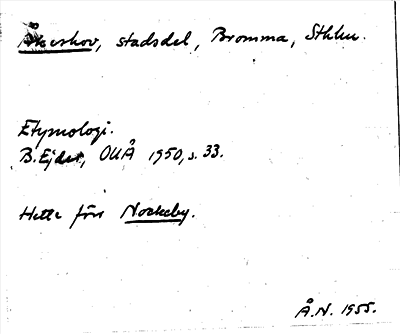 Åkeshov, stadsdel, Bromma, Sthlm.
Etymologi.
B. Ejder, OUÅ 1950, s. 33.
Hette förr Nockeby.
Å.N. 1955.